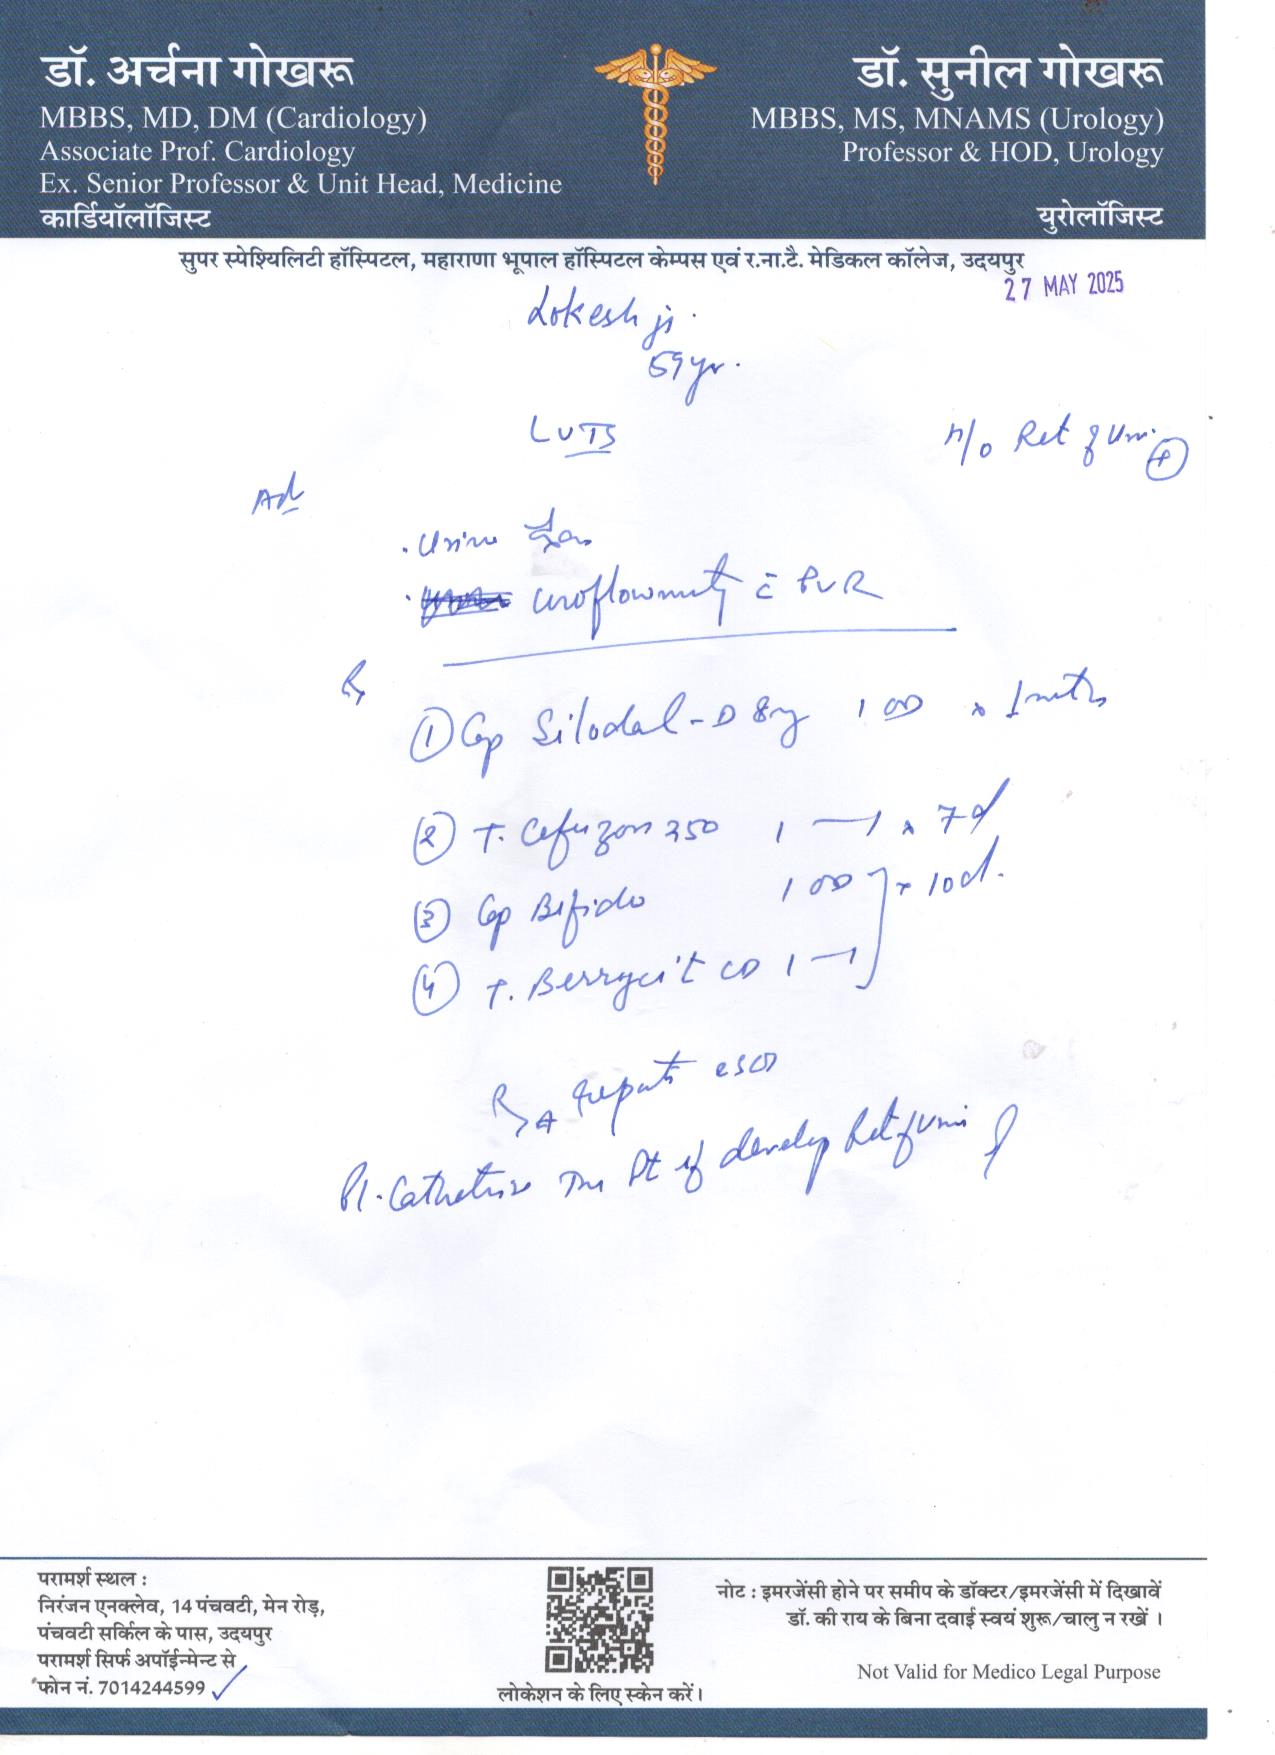 डॉ. अर्चना गोखरू
MBBS, MD, DM (Cardiology)
Associate Prof. Cardiology
Ex. Senior Professor & Unit Head, Medicine
कार्डियॉलॉजिस्ट
डॉ. सुनील गोखरू
MBBS, MS, MNAMS (Urology)
Professor & HOD, Urology
युरोलॉजिस्ट
सुपर स्पेश्यिलिटी हॉस्पिटल, महाराणा भूपाल हॉस्पिटल केम्पस एवं र.ना.टै. मेडिकल कॉलेज, उदयपुर
27 MAY 2025
Lokesh ji.
59 yr.
LUTS
H/o Ret of Uri. +
Ad
. Urine
. Uroflowmety c̄ PVR
Rx
① Cap Silodal-D 8mg 1 OD x 1 mth
② T. Cefuzon 250 1 — 1 x 7d
③ Cap Bifido 1 OD
x 10d.
④ T. Berrycit CD 1 — 1
R Reports
Pl. Cathetrise The Pt if develop Ret of Uri
परामर्श स्थल :
निरंजन एनक्लेव, 14 पंचवटी, मेन रोड़,
पंचवटी सर्किल के पास, उदयपुर
परामर्श सिर्फ अपॉईन्मेन्ट से
फोन नं. 7014244599
लोकेशन के लिए स्केन करें।
नोट : इमरजेंसी होने पर समीप के डॉक्टर/इमरजेंसी में दिखावें
डॉ. की राय के बिना दवाई स्वयं शुरू/चालु न रखें ।
Not Valid for Medico Legal Purpose